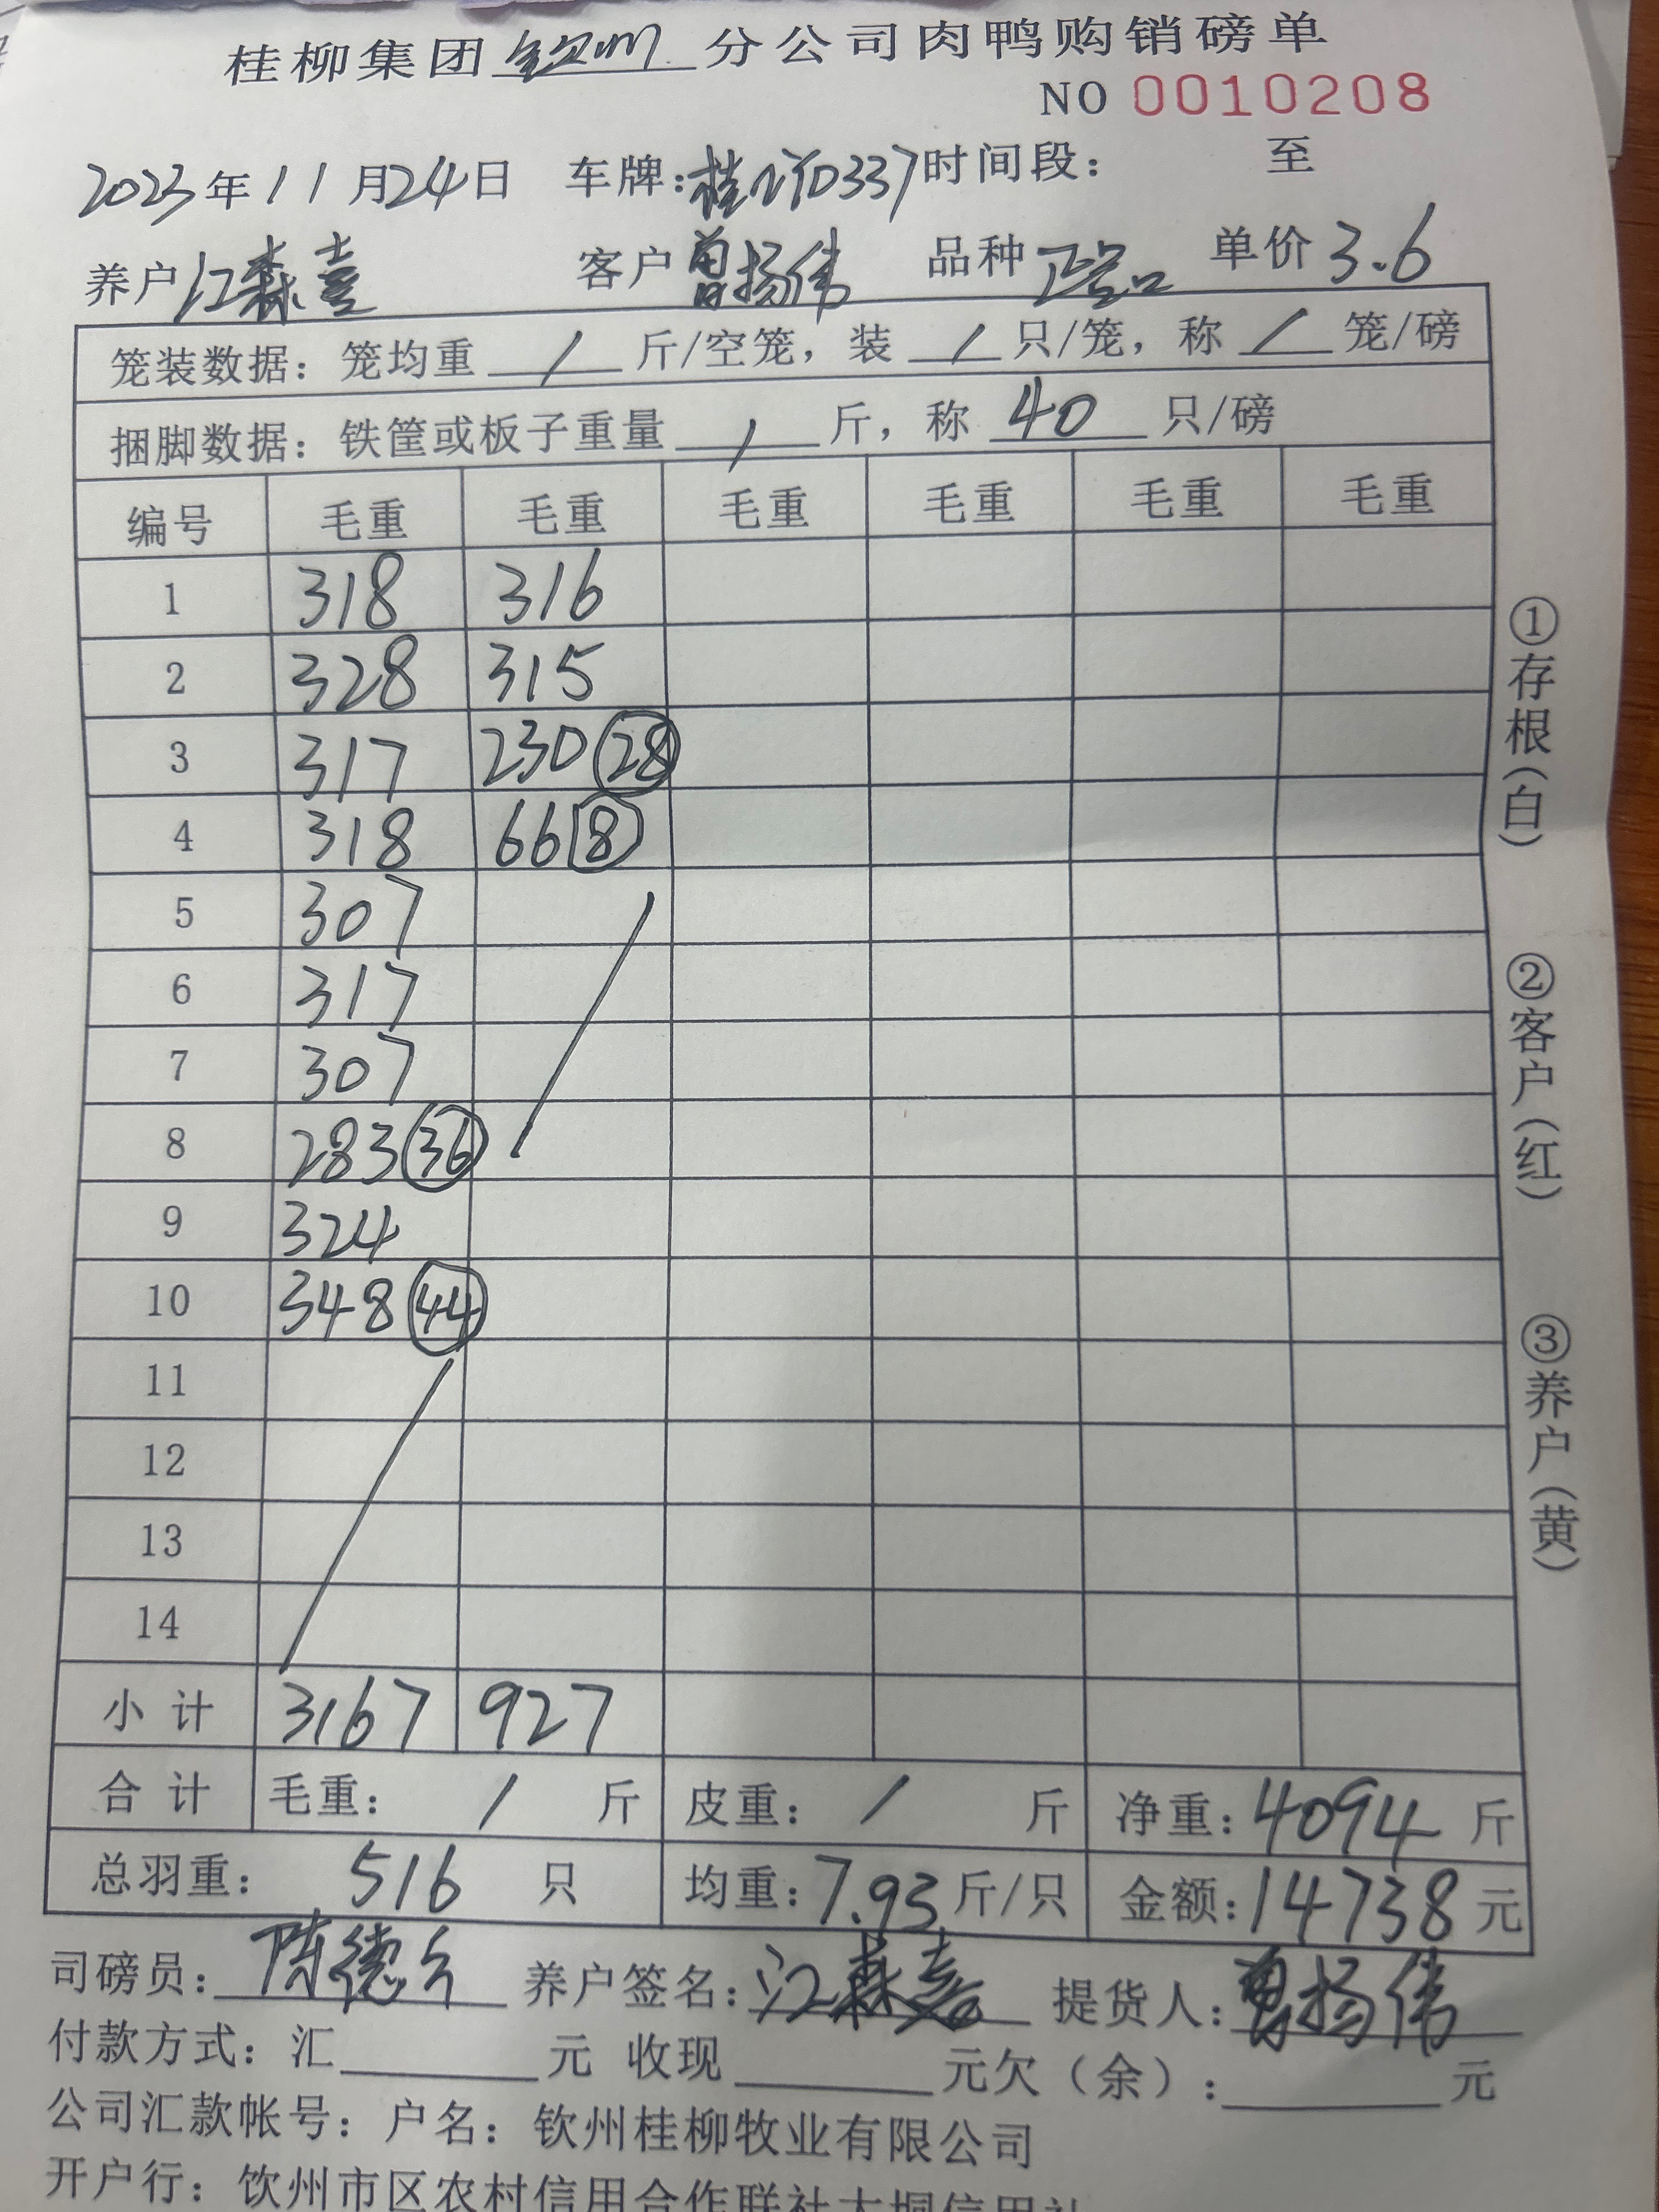 桂柳集团钦州分公司肉鸭购销磅单
NO 0010208
2023年11月24日 车牌:桂 D337 时间段: 至
养户 江森 客户 曾扬伟 品种 单价 3.6
笼装数据: 笼均重 / 斤/空笼, 装 / 只/笼, 称 / 笼/磅
捆脚数据: 铁筐或板子重量 / 斤, 称 40 只/磅
编号 毛重 毛重 毛重 毛重 毛重 毛重
1 318 316
2 328 315
3 317 230 28
4 318 66 8
5 307
6 317
7 307
8 283 36
9 324
10 348 44
11
12
13
14
小计 3167 927
合计 毛重: / 斤 皮重: / 斤 净重: 4094 斤
总羽重: 516 只 均重: 7.93 斤/只 金额: 14738 元
司磅员: 陈德 养户签名: 江森 提货人: 曾扬伟
付款方式: 汇 元 收现 元欠(余): 元
公司汇款帐号: 户名: 钦州桂柳牧业有限公司
开户行: 钦州市区农村信用合作联社大垌信用社
①存根(白)
②客户(红)
③养户(黄)